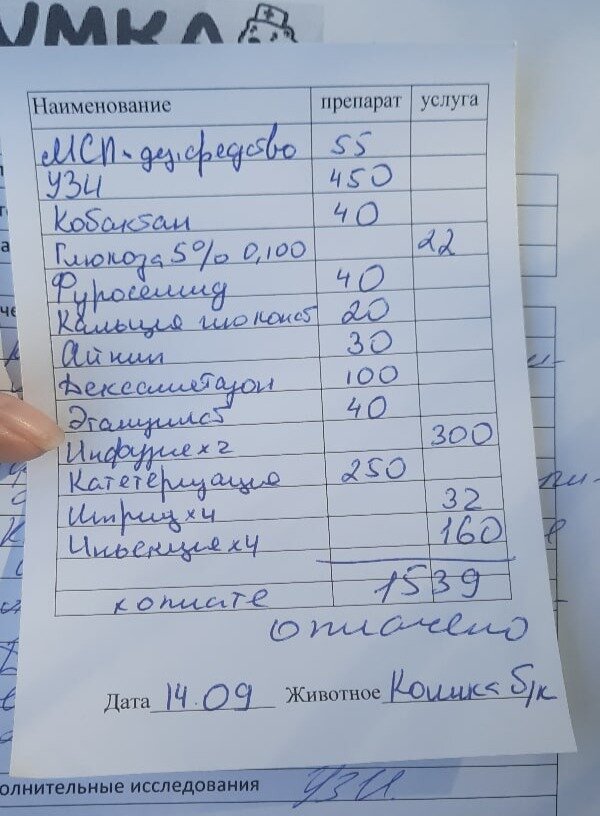 УМКА
Наименование препарат услуга
МСП-дез.средство 55
УЗИ 450
Кобактан 40
Глюкоза 5% 0,100 22
Фуросемид 40
Кальция глюконат 20
Айнил 30
Дексаметазон 100
Этамзилат 40
Инфузие х2 300
Катетеризация 250
Шприц х4 32
Инъекция х4 160
1539
к оплате
оплачено
Дата 14.09 Животное Кошка б/к
олнительные исследования УЗИ